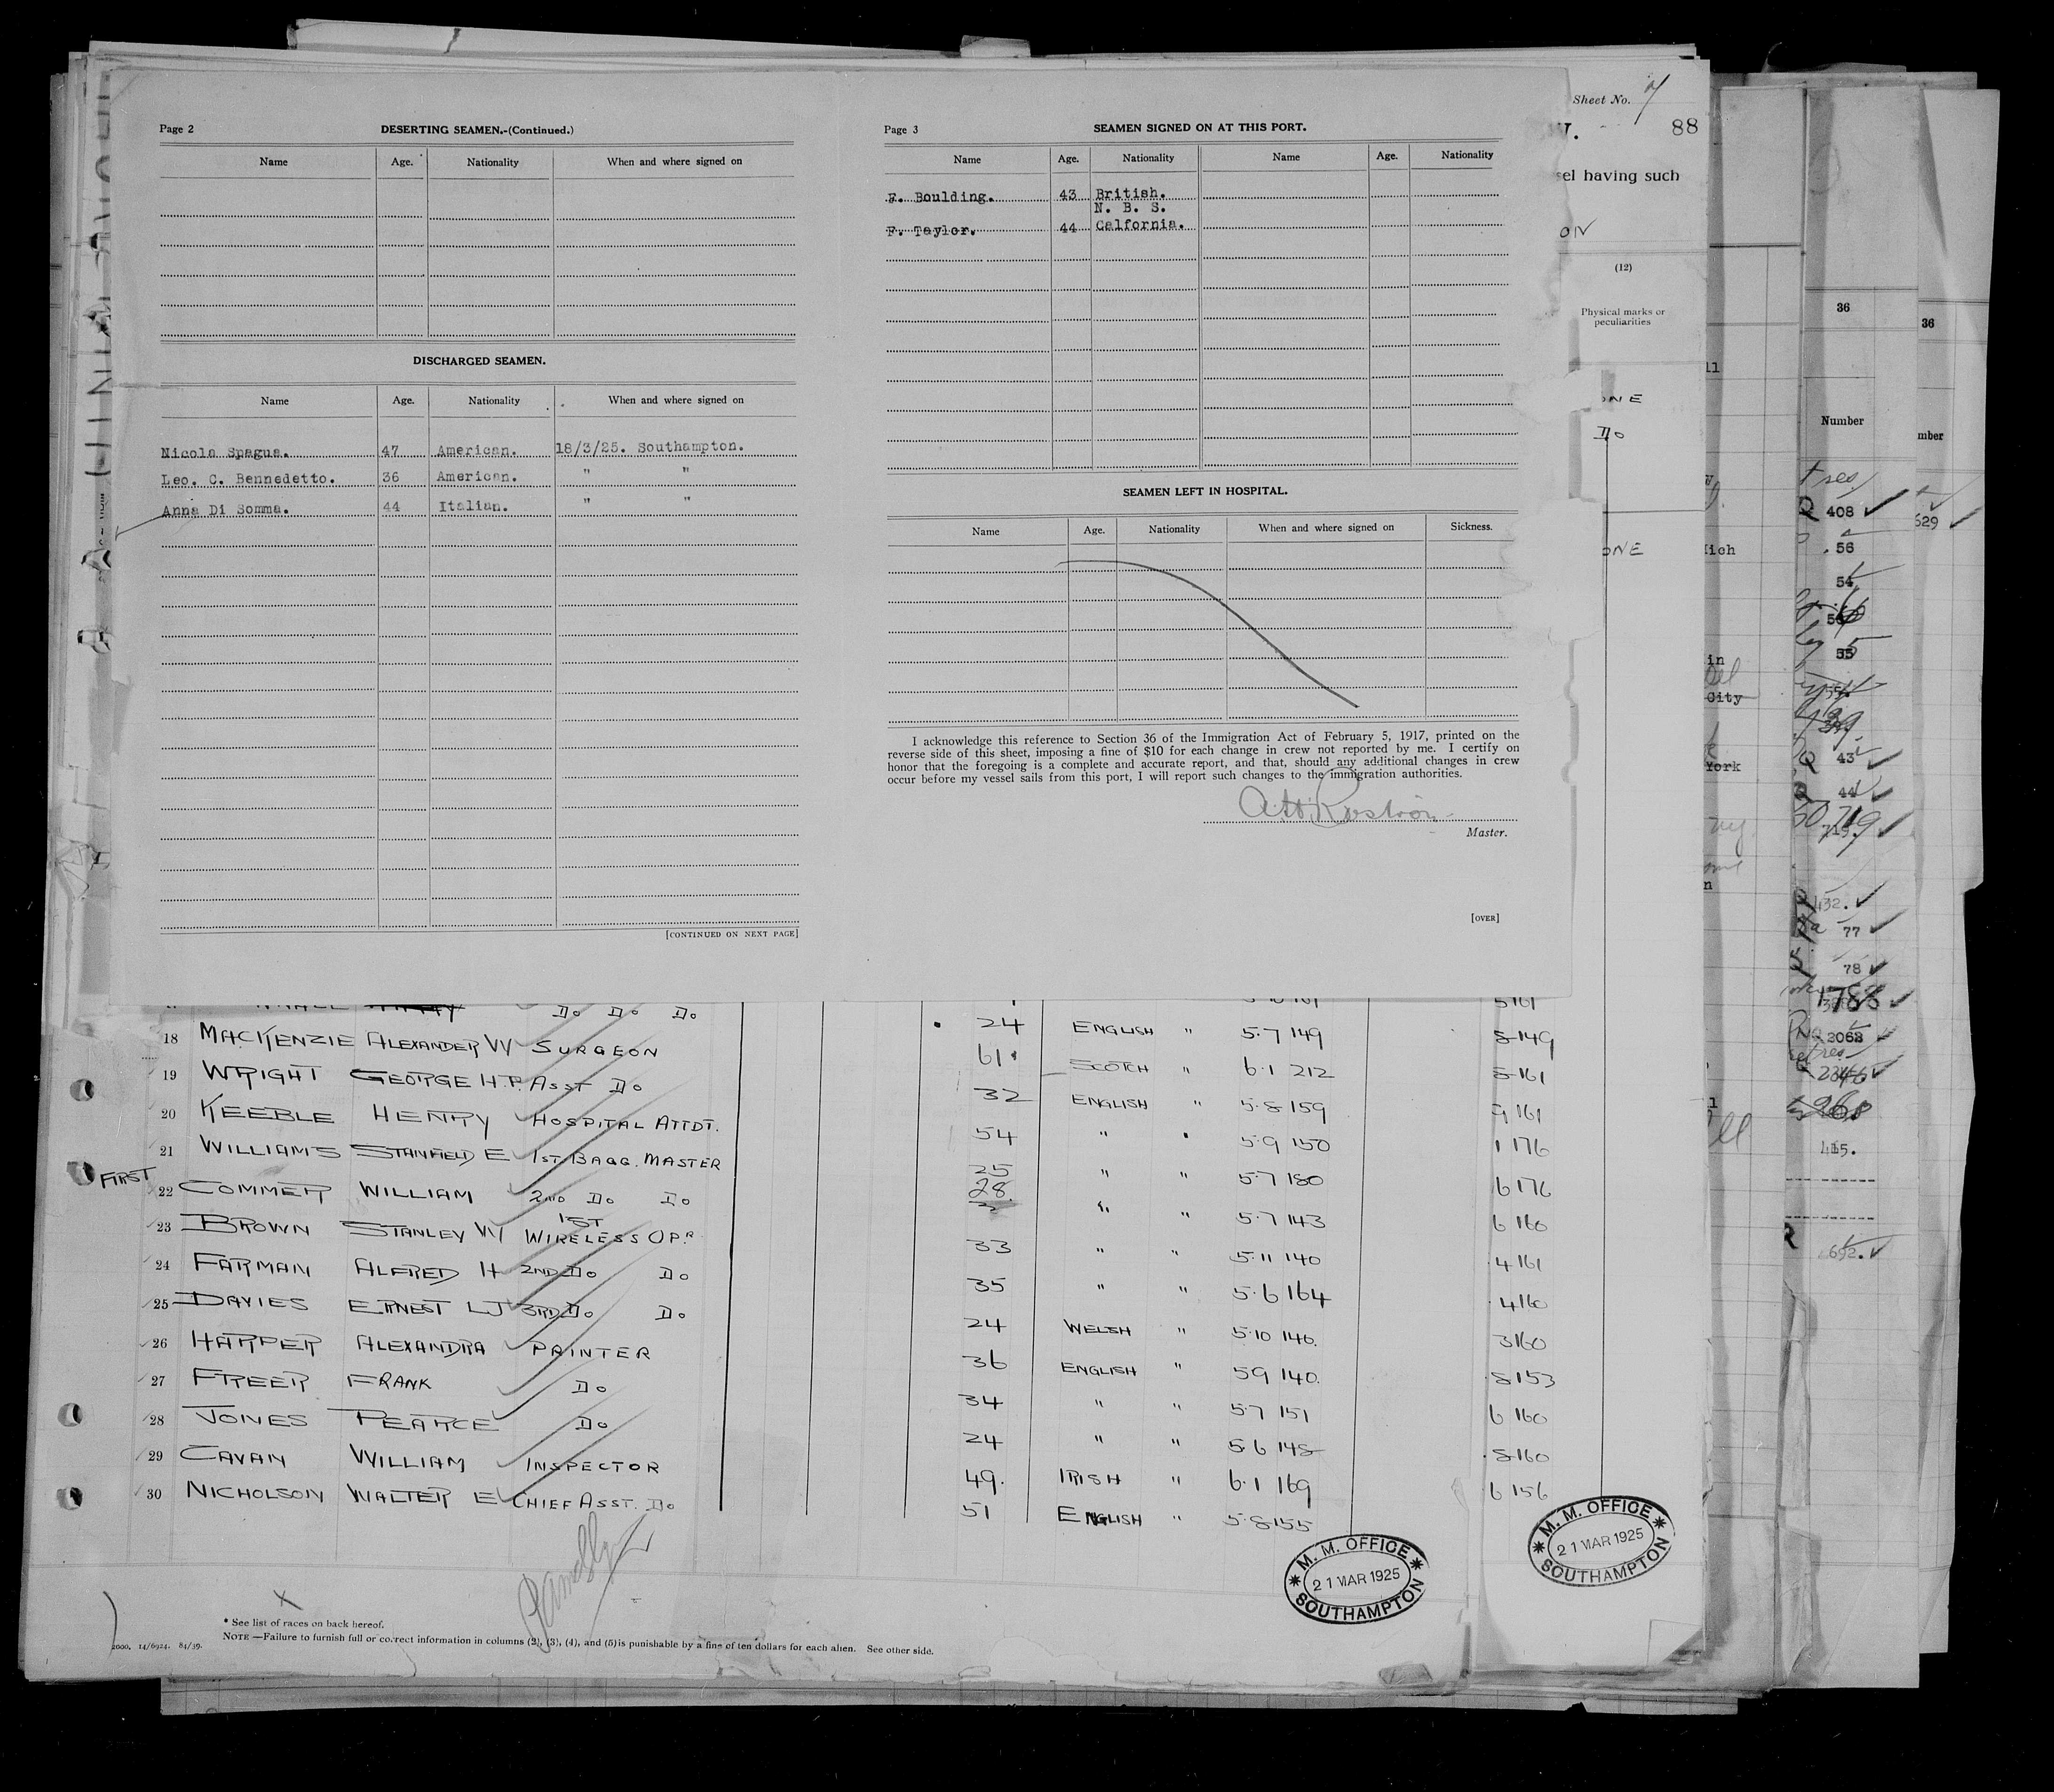 Page 2 DESERTING SEAMEN.-(Continued.)
Name Age. Nationality When and where signed on
DISCHARGED SEAMEN.
Name Age. Nationality When and where signed on
Nicola Spagua. 47 American. 18/3/25. Southampton.
Leo. C. Bennedetto. 36 American. " "
Anna Di Somma. 44 Italian. " "
[CONTINUED ON NEXT PAGE]
Page 3 SEAMEN SIGNED ON AT THIS PORT.
Name Age. Nationality Name Age. Nationality
F. Boulding. 43 British.
N. B. S.
F. Taylor. 44 Calfornia.
SEAMEN LEFT IN HOSPITAL.
Name Age. Nationality When and where signed on Sickness.
I acknowledge this reference to Section 36 of the Immigration Act of February 5, 1917, printed on the
reverse side of this sheet, imposing a fine of $10 for each change in crew not reported by me. I certify on
honor that the foregoing is a complete and accurate report, and that, should any additional changes in crew
occur before my vessel sails from this port, I will report such changes to the immigration authorities.
A. H. Rostron
Master.
[OVER]
Sheet No.
88
sel having such
ON
(12)
Physical marks or
peculiarities
ONE
Do
ONE
36
Number
408
56
54
43
44
77
78
36
mber
629
City
York
Do Do Do 5 161
18 MACKENZIE ALEXANDER W SURGEON 24 ENGLISH " 5·7 149 8 149
19 WRIGHT GEORGE H.P. ASST DO 61 SCOTCH " 6·1 212 8 161
20 KEEBLE HENRY HOSPITAL ATTDT. 32 ENGLISH " 5·8 159 9 161
21 WILLIAMS STANFIELD E 1ST BAGG. MASTER 54 " " 5·9 150 1 176
FIRST 22 COMMER WILLIAM 2ND DO DO 25 " " 5·7 180 6 176
28
23 BROWN STANLEY W 1ST WIRELESS OPR " " 5·7 143 6 160
24 FARMAN ALFRED H 2ND DO DO 33 " " 5·11 140 4 161
25 DAVIES ERNEST L J 3RD DO DO 35 " " 5·6 164 4 160
26 HARPER ALEXANDRA PAINTER 24 WELSH " 5·10 146. 3 160
27 FREER FRANK DO 36 ENGLISH " 5 9 140. 8 153
28 JONES PEARCE DO 34 " " 5·7 151 6 160
29 CAVAN WILLIAM INSPECTOR 24 " " 5·6 148 8 160
30 NICHOLSON WALTER E CHIEF ASST. DO 49. IRISH " 6·1 169 6 156
51 ENGLISH " 5·8 155
M. M. OFFICE
21 MAR 1925
SOUTHAMPTON
M. M. OFFICE
21 MAR 1925
SOUTHAMPTON
* See list of races on back hereof.
NOTE—Failure to furnish full or correct information in columns (2), (3), (4), and (5) is punishable by a fine of ten dollars for each alien. See other side.
2000. 14/6924. 84/39.